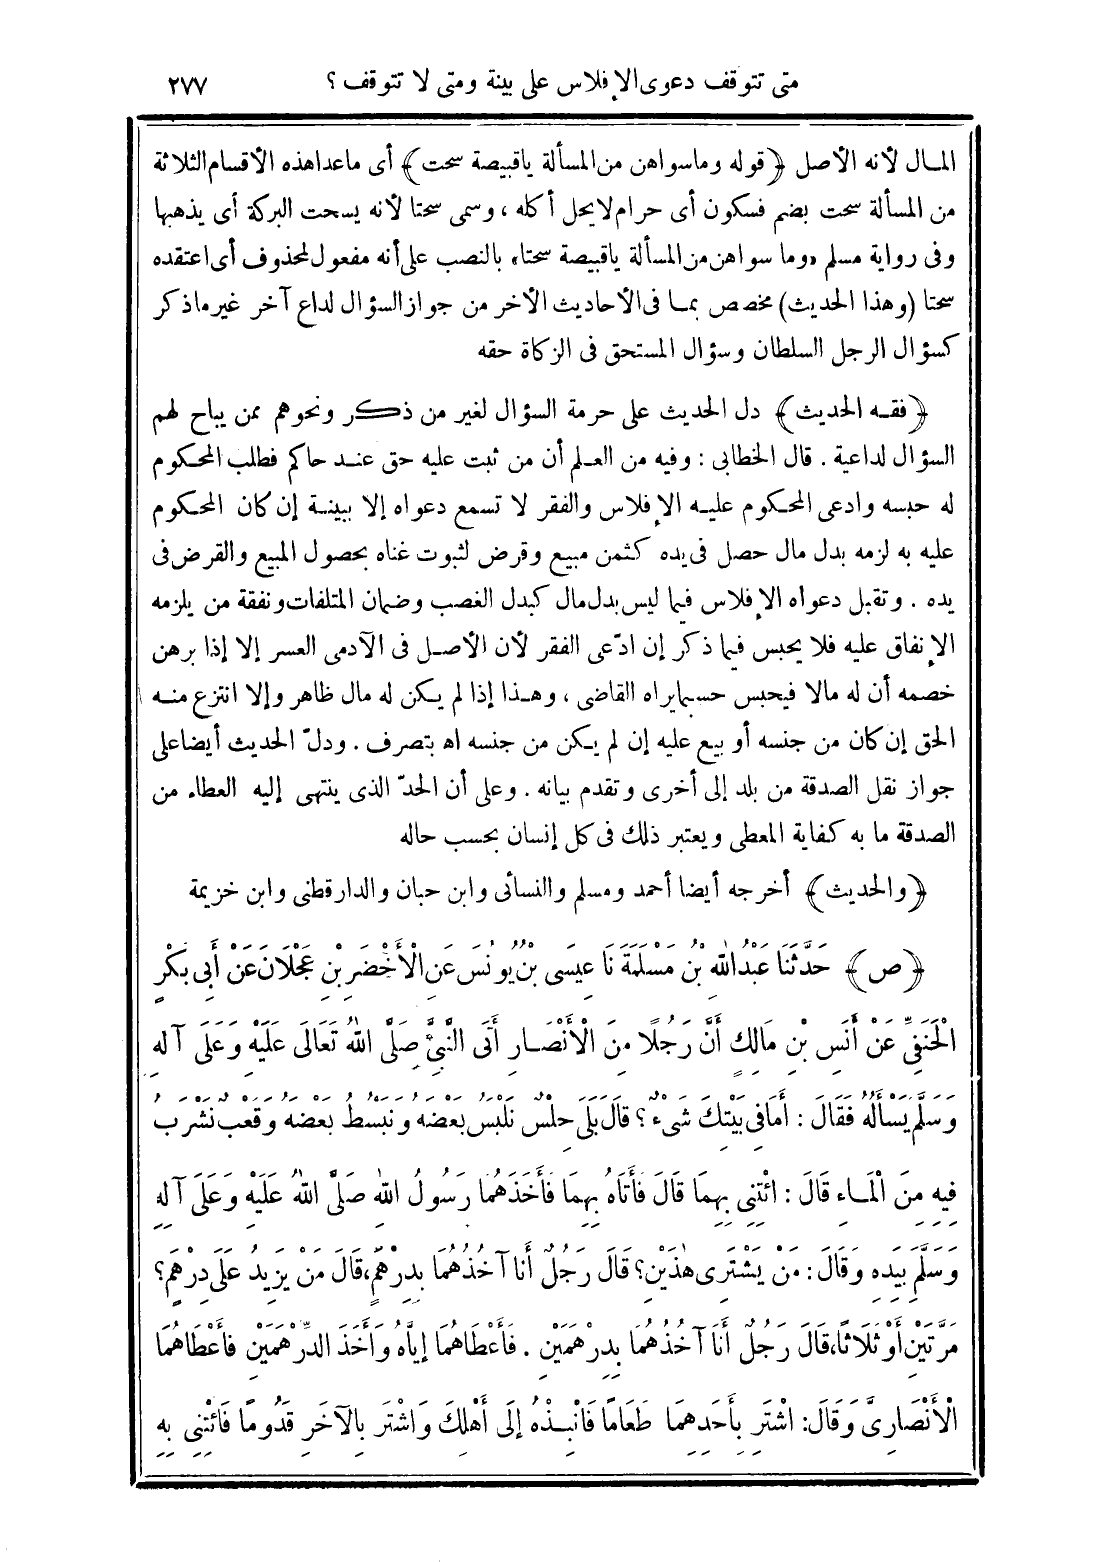 متى تتوقف دعوى الإفلاس على بينة ومتى لا تتوقف ؟ ٢٧٧
المال لأنه الأصل ﴿قوله وماسواهن من المسألة ياقبيصة سحت﴾ أى ماعدا هذه الأقسام الثلاثة
من المسألة سحت بضم فسكون أى حرام لايحل أكله ، وسمى سحتا لأنه يسحت البركة أى يذهبها
وفى رواية مسلم «وما سواهن من المسألة ياقبيصة سحتا» بالنصب على أنه مفعول لمحذوف أى اعتقده
سحتا (وهذا الحديث) مخصص بما فى الأحاديث الأخر من جواز السؤال لداع آخر غير ماذكر
كسؤال الرجل السلطان وسؤال المستحق فى الزكاة حقه
﴿فقه الحديث﴾ دل الحديث على حرمة السؤال لغير من ذكر ونحوهم ممن يباح لهم
السؤال لداعية . قال الخطابى : وفيه من العلم أن من ثبت عليه حق عند حاكم فطلب المحكوم
له حبسه وادعى المحكوم عليه الإفلاس والفقر لا تسمع دعواه إلا ببينة إن كان المحكوم
عليه به لزمه بدل مال حصل فى يده كثمن مبيع وقرض لثبوت غناه بحصول المبيع والقرض فى
يده . وتقبل دعواه الإفلاس فيما ليس بدل مال كبدل الغصب وضمان المتلفات ونفقة من يلزمه
الإنفاق عليه فلا يحبس فيما ذكر إن ادّعى الفقر لأن الأصل فى الآدمى العسر إلا إذا برهن
خصمه أن له مالا فيحبس حسبما يراه القاضى ، وهذا إذا لم يكن له مال ظاهر وإلا انتزع منه
الحق إن كان من جنسه أو بيع عليه إن لم يكن من جنسه اه بتصرف . ودلّ الحديث أيضا على
جواز نقل الصدقة من بلد إلى أخرى وتقدم بيانه . وعلى أن الحدّ الذى ينتهى إليه العطاء من
الصدقة ما به كفاية المعطى ويعتبر ذلك فى كل إنسان بحسب حاله
﴿والحديث﴾ أخرجه أيضا أحمد ومسلم والنسائى وابن حبان والدارقطنى وابن خزيمة
﴿ص﴾ حَدَّثَنَا عَبْدُ اللهِ بْنُ مَسْلَمَةَ نَا عِيسَى بْنُ يُونُسَ عَنِ الْأَخْضَرِ بْنِ عَجْلَانَ عَنْ أَبِى بَكْرٍ
الْحَنَفِىِّ عَنْ أَنَسِ بْنِ مَالِكٍ أَنَّ رَجُلًا مِنَ الْأَنْصَارِ أَتَى النَّبِىَّ صَلَّى اللهُ تَعَالَى عَلَيْهِ وَعَلَى آلِهِ
وَسَلَّمَ يَسْأَلُهُ فَقَالَ : أَمَا فِى بَيْتِكَ شَىْءٌ ؟ قَالَ بَلَى حِلْسٌ نَلْبَسُ بَعْضَهُ وَنَبْسُطُ بَعْضَهُ وَقَعْبٌ نَشْرَبُ
فِيهِ مِنَ الْمَاءِ قَالَ : ائْتِنِى بِهِمَا قَالَ فَأَتَاهُ بِهِمَا فَأَخَذَهُمَا رَسُولُ اللهِ صَلَّى اللهُ عَلَيْهِ وَعَلَى آلِهِ
وَسَلَّمَ بِيَدِهِ وَقَالَ : مَنْ يَشْتَرِى هٰذَيْنِ ؟ قَالَ رَجُلٌ أَنَا آخُذُهُمَا بِدِرْهَمٍ، قَالَ مَنْ يَزِيدُ عَلَى دِرْهَمٍ؟
مَرَّتَيْنِ أَوْ ثَلَاثًا، قَالَ رَجُلٌ أَنَا آخُذُهُمَا بِدِرْهَمَيْنِ . فَأَعْطَاهُمَا إِيَّاهُ وَأَخَذَ الدِّرْهَمَيْنِ فَأَعْطَاهُمَا
الْأَنْصَارِىَّ وَقَالَ: اشْتَرِ بِأَحَدِهِمَا طَعَامًا فَانْبِذْهُ إِلَى أَهْلِكَ وَاشْتَرِ بِالْآخَرِ قَدُومًا فَائْتِنِى بِهِ